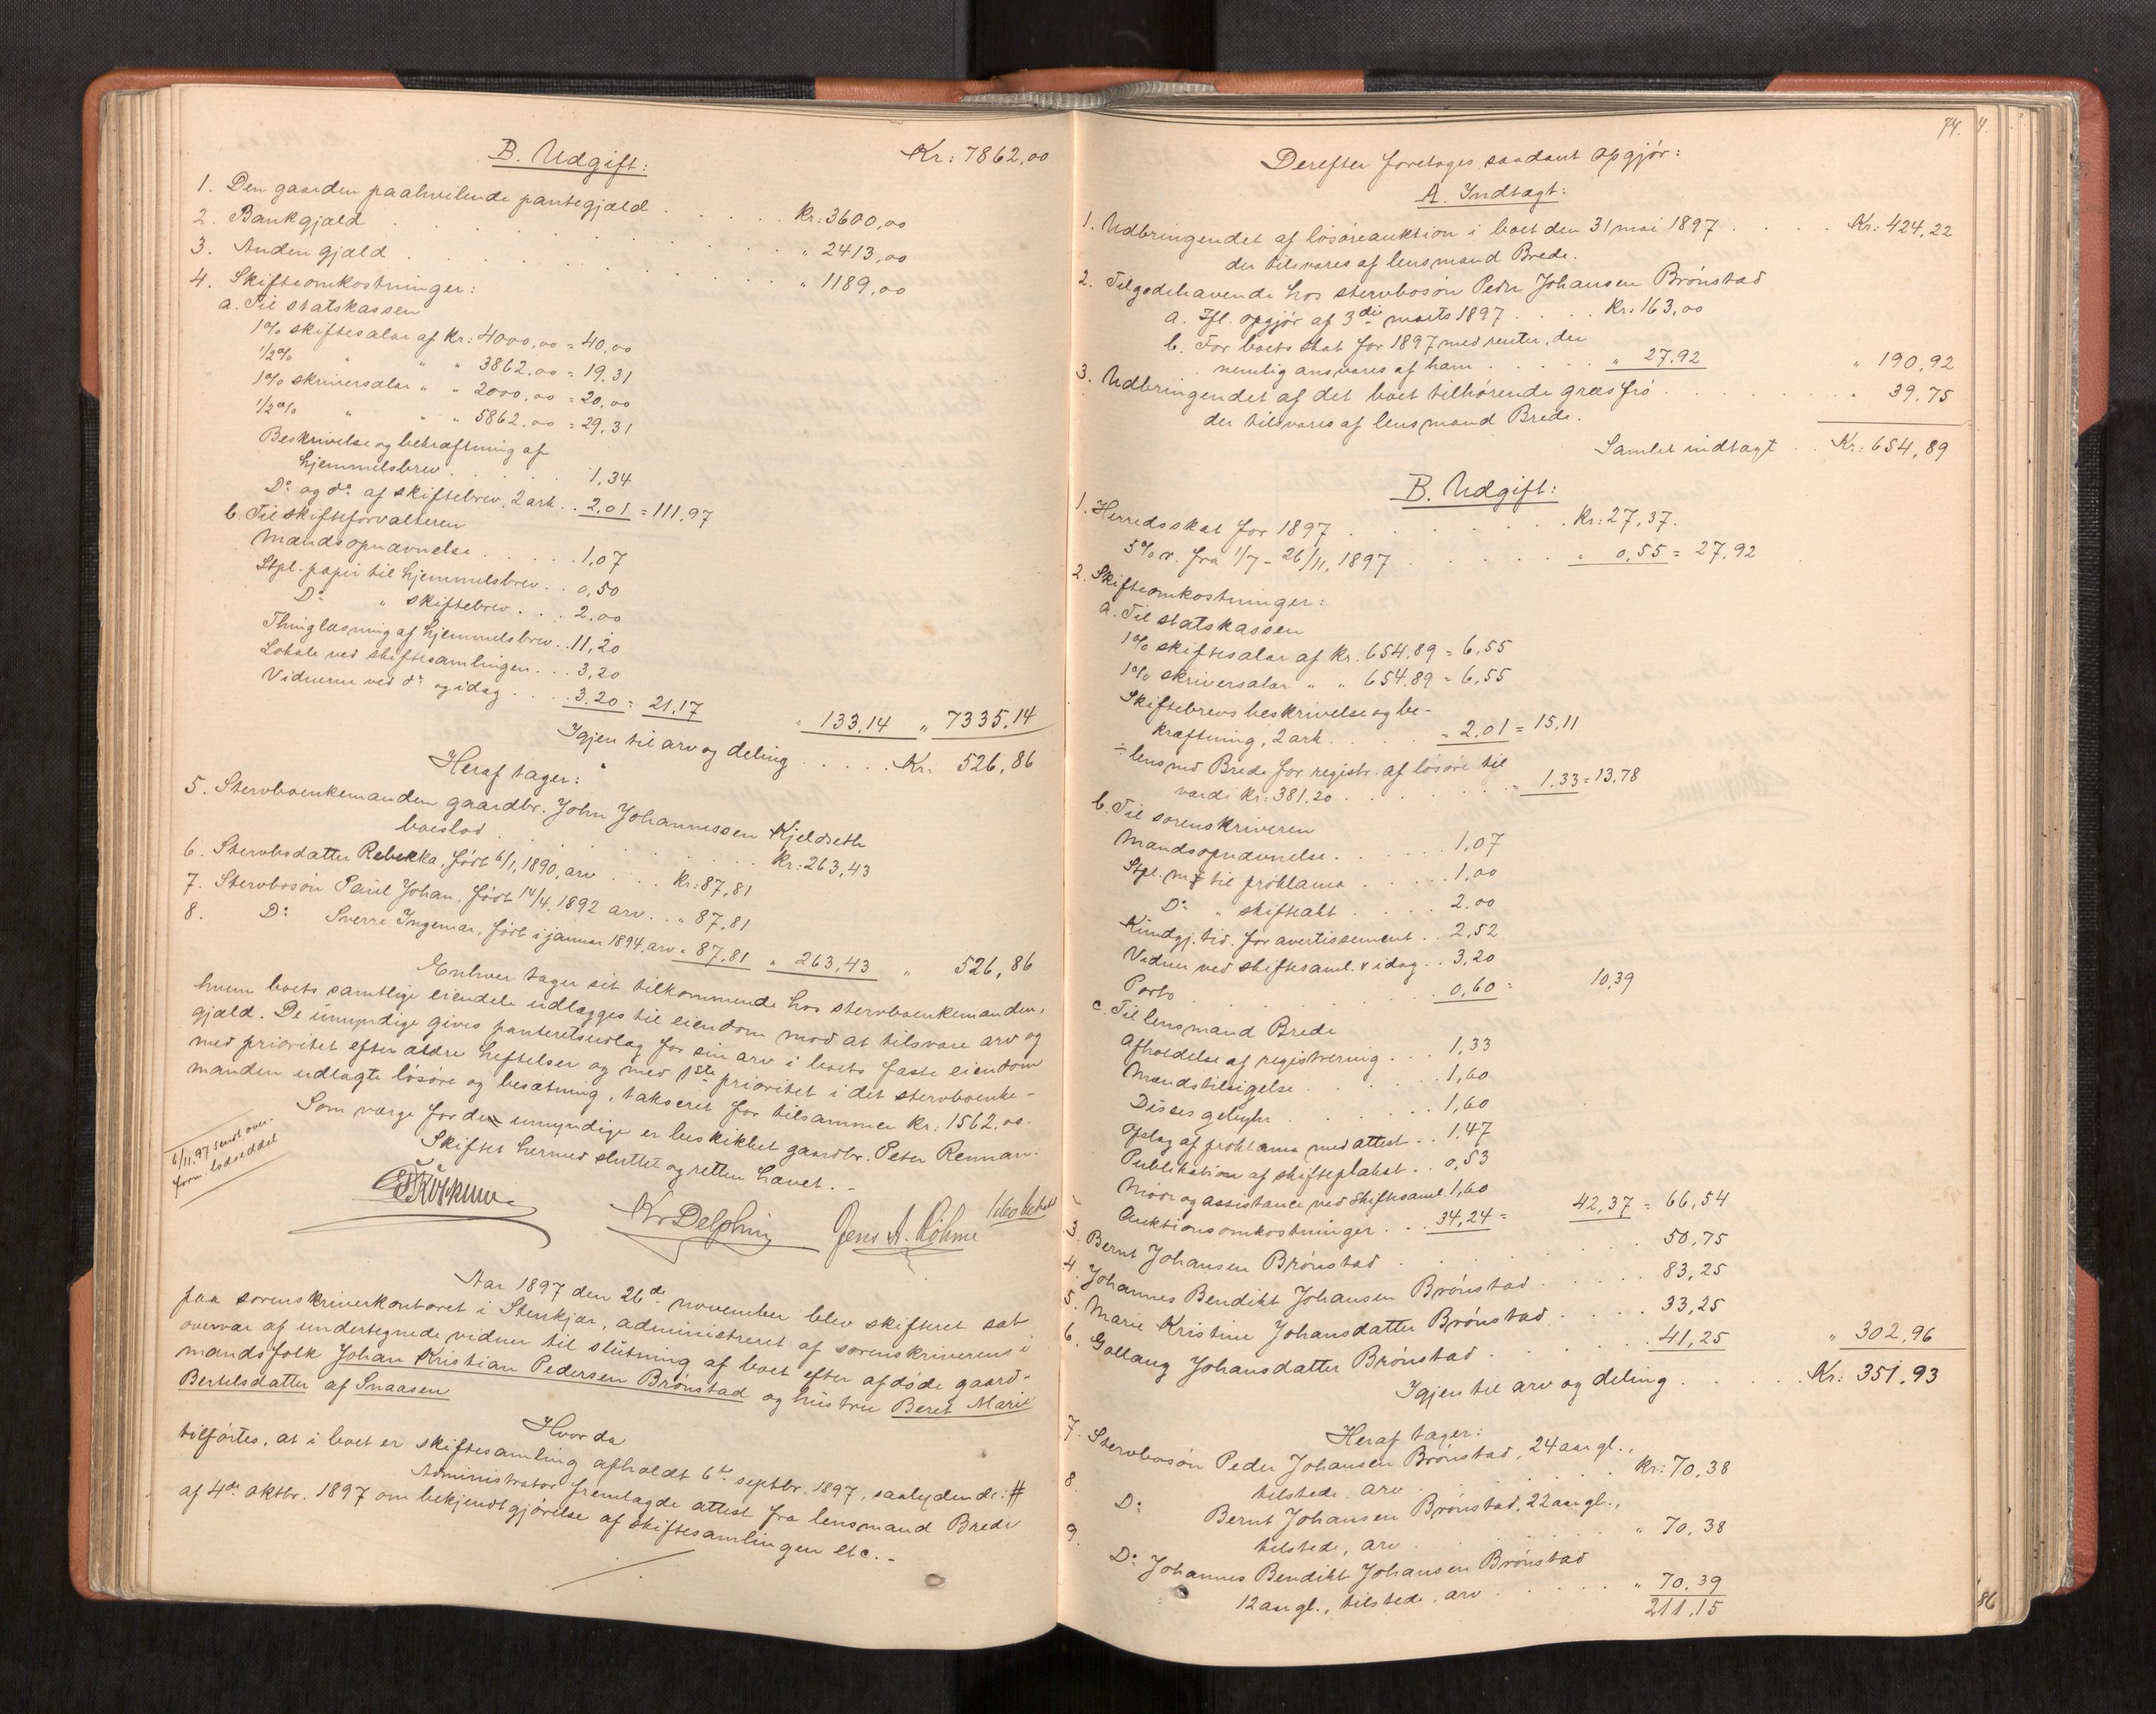 Kr: 7862,00
B. Udgift:
1. Den gaarden paahvilende pantegjæld . . . . . Kr: 3600,00
2. Bankgjæld . . . . . " 2413,00
3. Anden gjæld . . . . . " 1189,00
4. Skifteomkostninger:
a. Til statskassen
1% skiftesalær af Kr: 4000,00 = 40,00
1/2% " " " 3862,00 = 19,31
1% skriversalær " " 2000,00 = 20,00
1/2% " " " 5862,00 = 29,31
Beskrivelse og bekræftning af
hjemmelsbrev . . . . 1,34
Do og do af skiftebrev, 2 ark . . 2,01 = 111,97
b. Til skifteforvalteren
Mændsopnævnelse . . . . . 1,07
Stpl. papir til hjemmelsbrev . . 0,50
Do " skiftebrev . . . 2,00
Thinglæsning af hjemmelsbrev . . 11,20
Lokale ved skiftesamlingen . . . 3,20
Vidnerne ved do og idag . . . . 3,20 = 21,17 " 133,14 " 7335,14
Igjen til arv og deling . . . . . Kr: 526,86
Heraf tager:
5. Stervboenkemanden gaardbr. John Johannessen Kjeldseth
boeslod . . . . . Kr: 263,43
6. Stervbodatter Rebekka, født 6/1, 1890, arv . . . Kr: 87,81
7. Stervbosøn Paul Johan, født 14/4, 1892 arv . . " 87,81
8. Do Sverre Ingemar, født i januar 1894, arv " 87,81 " 263,43 " 526,86
Enhver tager sit tilkommende hos stervboenkemanden,
hvem boets samtlige eiendele udlægges til eiendom mod at tilsvare arv og
gjæld. De umyndige gives panteretsudlæg for sin arv i boets faste eiendom
med prioritet efter ældre heftelser og med 1ste prioritet i det stervboenke-
manden udlagte løsøre og besætning, takseret for tilsammen Kr: 1562,00.
Som værge for de umyndige er beskikket gaardbr. Peter Rennan.
Skiftet hermed sluttet og retten hævet. -
6/11.97 sendt over-
form. lodseddel
Kr Delphin Jens A. Røhme
Aar 1897 den 26de november blev skifteret sat
paa sorenskriverkontoret i Stenkjær, administreret af sorenskriveren i
overvær af undertegnede vidner til slutning af boet efter afdøde gaard-
mandsfolk Johan Kristian Pedersen Brønstad og hustru Beret Marie
Bertelsdatter af Snaasen
Hvorda
tilførtes, at i boet er skiftesamling afholdt 6te septbr. 1897, saalydende: #
Administrator fremlagde attest fra lensmand Brede
af 4de oktbr. 1897 om bekjendtgjørelse af skiftesamlingen etc. -
74.
Derefter foretages saadant opgjør:
A. Indtægt:
1. Udbringendet af løsøreauktion i boet den 31 mai 1897 . . . . Kr: 424,22
der tilsvares af lensmand Brede.
2. Tilgodehavende hos stervbosøn Peder Johansen Brønstad
a. Ifl. opgjør af 3die marts 1897 . . . . Kr: 163,00
b. For boets skat for 1897 med renter, der
nemlig ansvares af ham . . . . . " 27,92 " 190,92
3. Udbringendet af det boet tilhørende græsfrø . . . . . " 39,75
der tilsvares af lensmand Brede.
Samlet indtægt . . Kr: 654,89
B. Udgift:
1. Herredsskat for 1897 . . . . . Kr: 27,37.
5% r. fra 1/7 - 26/11, 1897 . . . . . " 0,55 = 27,92
2. Skifteomkostninger:
a. Til statskassen
1% skiftesalær af Kr. 654,89 = 6,55
1% skriversalær " " 654,89 = 6,55
Skiftebrevs beskrivelse og be-
kræftning, 2 ark . . . . " 2,01 = 15,11
÷ lensmd Brede for registr. af løsøre til
værdi Kr: 381,20 . . . . . " 1,33 = 13,78
b. Til sorenskriveren
Mændsopnævnelse . . . . . 1,07
Stpl. m til proklama . . . . . 1,00
Do " skifteakt . . . . 2,00
Kundgj. tid. for avertissement . . 2,52
Vidner ved skiftesaml. & idag . . 3,20
Porto . . . . . 0,60 = 10,39
c. Til lensmand Brede
Afholdelse af registrering . . . 1,33
Mændstilsigelse . . . . . 1,60
Disses gebyhr . . . . . 1,60
Opslag af proklama med attest . . 1,47
Publikation af skifteplakat . . 0,53
Møde og assistance ved skiftesaml. 1,60
Auktionsomkostninger . . . 34,24 = 42,37 = 66,54
3. Bernt Johansen Brønstad . . . . . 50,75
4. Johannes Bendikt Johansen Brønstad . . . . . 83,25
5. Marie Kristine Johansdatter Brønstad . . . . . 33,25
6. Gollaug Johansdatter Brønstad . . . . . 41,25 " 302,96
Igjen til arv og deling . . . . . Kr: 351,93
Heraf tager:
7. Stervbosøn Peder Johansen Brønstad, 24 aar gl.,
tilstede, arv . . . . . Kr: 70,38
8. Do Bernt Johansen Brønstad, 22 aar gl.,
tilstede, arv . . . . . " 70,38
9. Do Johannes Bendikt Johansen Brønstad
12 aar gl., tilstede, arv . . . . . " 70,39
211,15
86